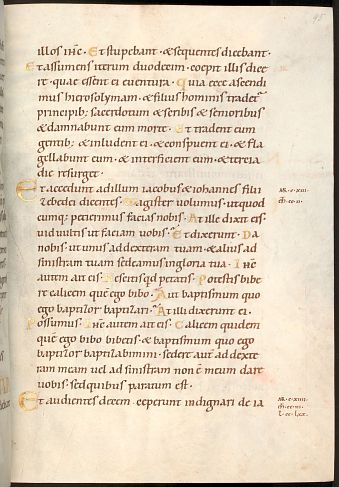 illos ihc. Et stupebant. & sequentes timebant.
Et assumens iterum duodecim. coepit illis dice
re. quae essent ei eventura. Quia ecce ascendi
mus hierosolymam. & filius hominis tradet
principib; sacerdotum & scribis & senioribus
& damnabunt eum morte. Et tradent eum
gentib; & inludent ei. & conspuent ei. & fla
gellabunt eum. & interficient eum. & tercia
die resurget.
Et accedunt ad illum iacobus & iohannes filii
zebedei dicentes. Magister volumus. ut quod
cumq; petierimus facias nobis. At ille dixit eis.
vid vultis ut faciam vobis. Et dixerunt. Da
nobis. ut unus ad dexteram tuam. & alius ad
sinistram tuam sedeamus in gloria tua. Ihc
autem ait eis. Nescitis qd petatis. Potestis bibe
re calicem quē ego bibo. Aut baptismum quo
ego baptizor baptizari. At illi dixerunt ei.
Possumus. Ihc autem ait eis. Calicem quidem
quē ego bibo bibetis. & baptismum quo ego
baptizor baptizabimini. sedere autē ad dexte
ram meam vel ad sinistram non ē meum dare
vobis. sed quibus paratum est.
Et audientes decem. ceperunt indignari de ia